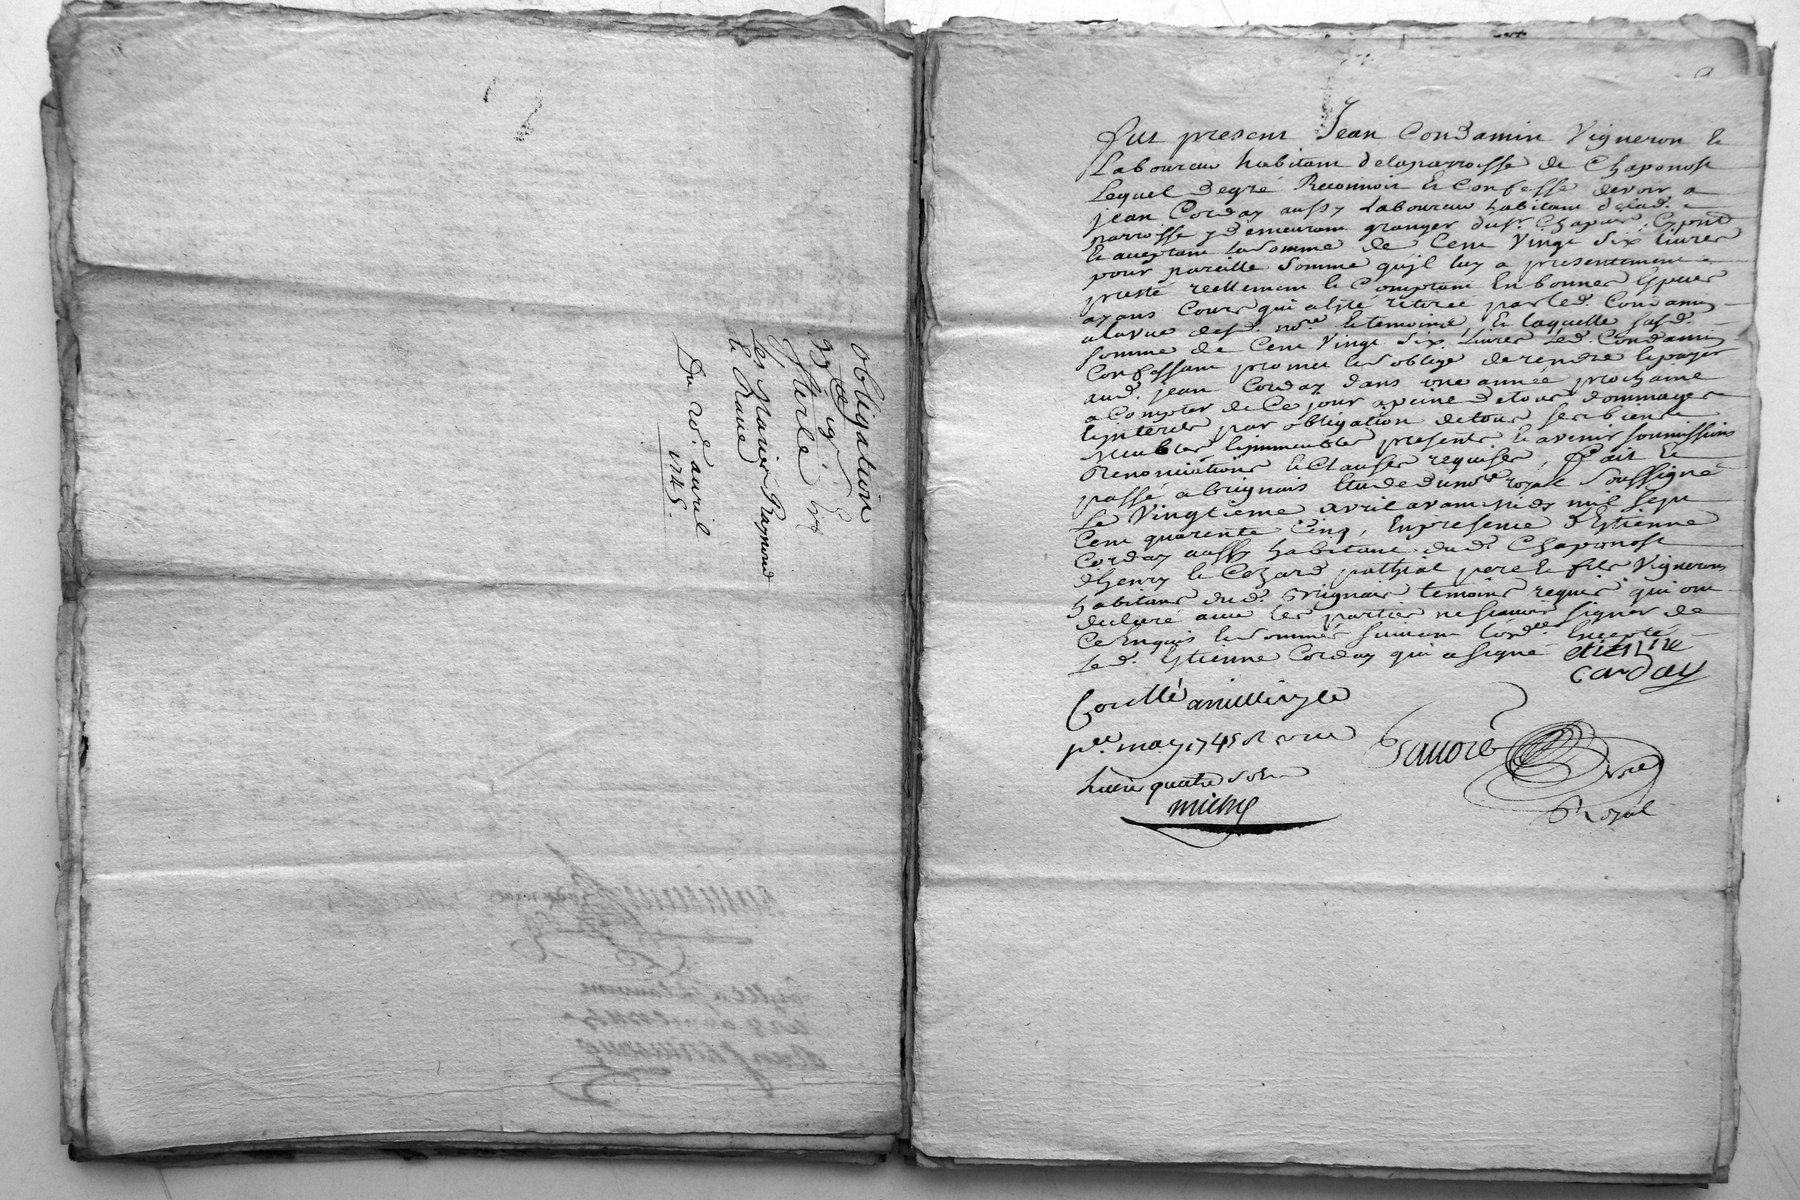 obligation
Merle
les mariés Raymond
le Rave
Du 20e. auril
1745.
Fut present Jean Condamin Vigneron &
Laboureur habitant delaparroisse de Chaponost
Lequel degré Reconnoit & Confesse devoir a
jean Corday aussy Laboureur habitant delad.
parroisse y demeurant granger dusr.
& aceptant la somme de Cent Vingt Six Livres
pour pareille somme qu'jl luy a presentement
presté réellement & Comptant En bonnes Especes
ayans Cours qui a été retirée par led. Condamin
alavue desd. nore. & temoins & laquelle susd.
somme de Cent Vingt Six Livres Led. Condamin
Confessant promet & s'oblige derendre & payer
aud. jean Corday dans une année prochaine
a Compter de Ce jour apeine detous dommages
& jnterets par obligation detous ses biens
Meubles & jmmeubles presents & avenir soumissions
Renonciations & Clauses requises, fait &
passé a brignais Etude du nore. royal soussigné
Le Vingtieme avril avant midy mil sept
Cent quarente Cinq, Enpresence d'Estienne
Corday aussy habitant dud. Chaponost
d'henry & pere & fils Vignerons
habitans dud. Brignais temoins requis qui ont
declaré avec les parties ne scavoir signer de
Ce Enquis & sommés suivant l'ordce. Excepté
Led. Estienne Corday qui a signé etienne
carday
Controllé
pr. may 1745
quatre sols
michy
Royal